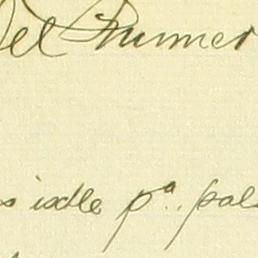 Del Primer
s ixtle pª. pals